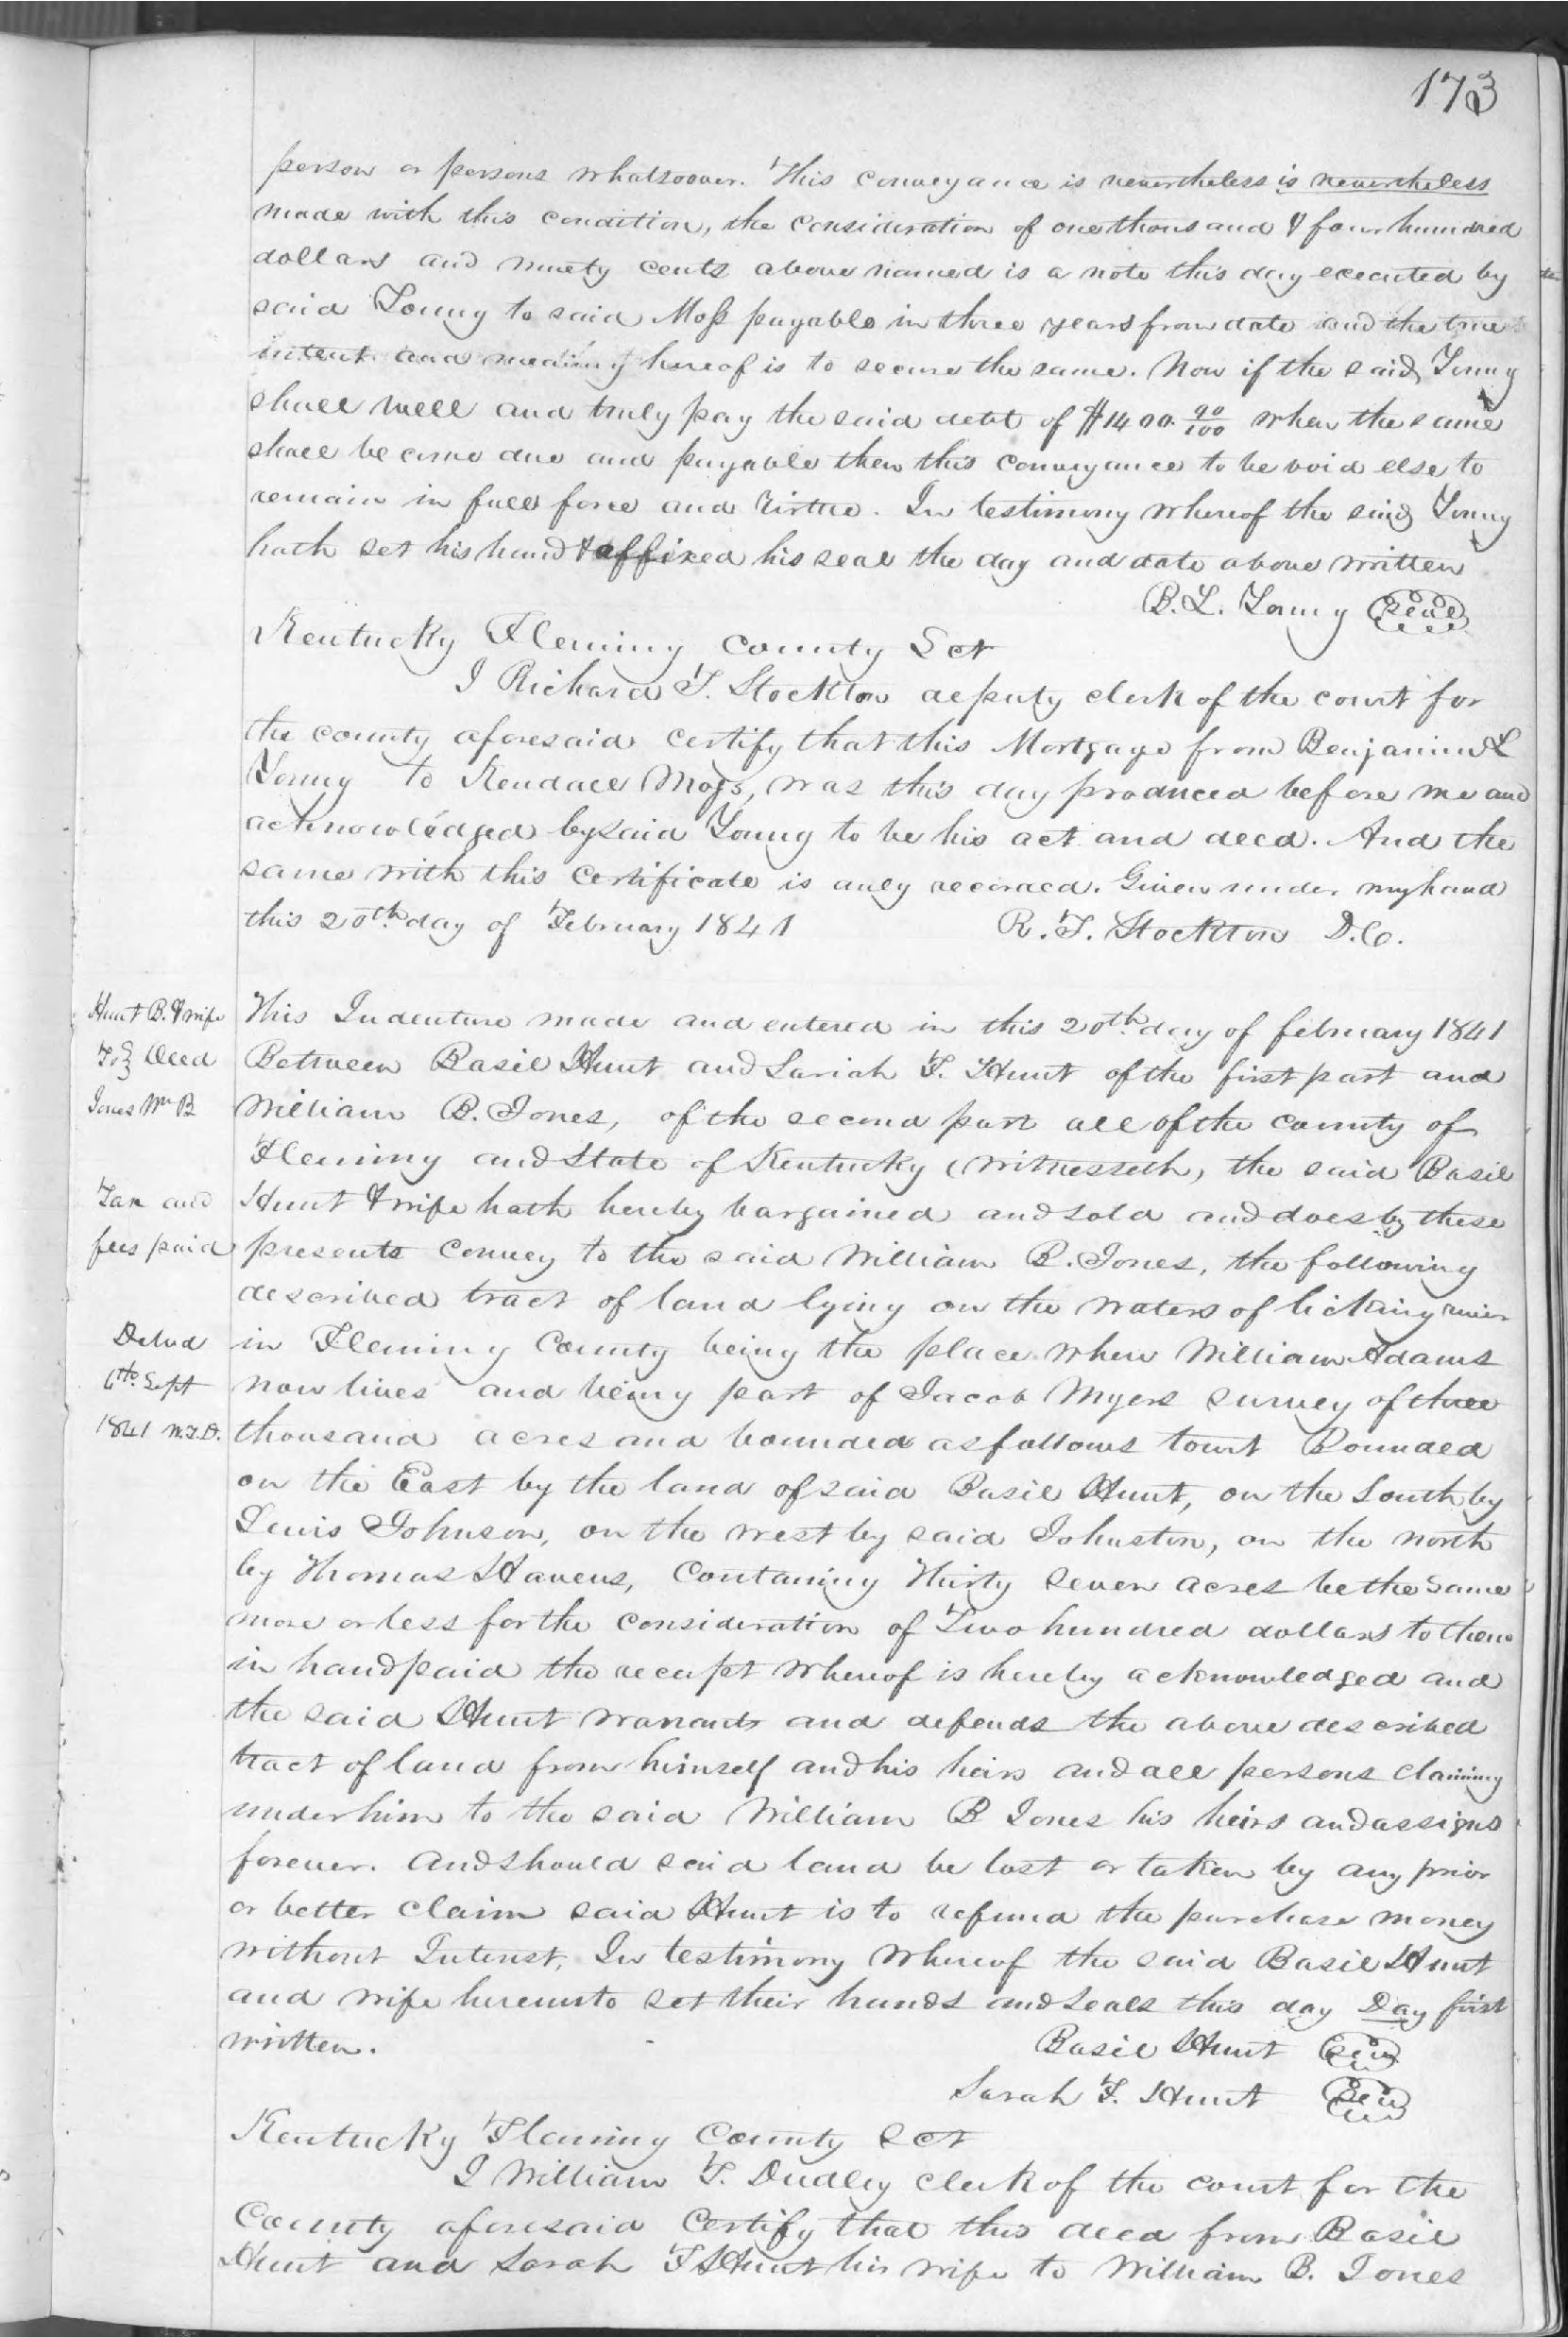 173
person or persons whatsoever. This conveyance is nevertheless is nevertheless
made with this condition, the consideration of one thousand & four hundred
dollars and ninety cents above named is a note this day executed by
said Young to said Moss payable in three years from date and the true
intent and meaning hereof is to secure the same. Now if the said Young
shall well and truly pay the said debt of $1400. 90/100 when the same
shall become due and payable then this conveyance to be void else to
remain in full force and virtue. In testimony whereof the said Young
hath set his hand & affixed his seal the day and date above written
B. L. Young Seal
Kentucky Fleming County Sct
I Richard T. Stockton deputy clerk of the court for
the county aforesaid certify that this Mortgage from Benjamin L
Young to Kendall Moss, was this day produced before me and
acknowledged by said Young to be his act and deed. And the
same with this certificate is duly recorded. Given under my hand
this 20th day of February 1841 R. T. Stockton D.C.
Hunt B. & wife
To } Deed
Jones Wm B
Tax and
fees paid
Delvd
6th Sept
1841 W.T.D.
This Indenture made and entered in this 20th day of february 1841
Between Basil Hunt and Sariah T. Hunt of the first part and
William B. Jones, of the second part all of the county of
Fleming and State of Kentucky (witnesseth, the said Basil
Hunt & wife hath hereby bargained and sold and does by these
presents convey to the said William B. Jones, the following
described tract of land lying on the waters of licking river
in Fleming County being the place where William Adams
now lives and being part of Jacob Myers survey of three
thousand acres and bounded as follows towit Bounded
on the East by the land of said Basil Hunt, on the South by
Lewis Johnson, on the west by said Johnston, on the north
by Thomas Havens, Containing Thirty seven acres be the same
more or less for the consideration of Two hundred dollars to them
in hand paid the receipt whereof is hereby acknowledged and
the said Hunt warrants and defends the above described
tract of land from himself and his heirs and all persons claiming
under him to the said William B Jones his heirs and assigns
forever. And should said land be lost or taken by any prior
or better claim said Hunt is to refund the purchase money
without Interest, In testimony whereof the said Basil Hunt
and wife hereunto set their hands and seals this day Day first
written. Basil Hunt Seal
Sarah T. Hunt Seal
Kentucky Fleming County Sct
I William T. Dudley clerk of the court for the
County aforesaid Certify that this deed from Basil
Hunt and Sarah T Hunt his wife to William B. Jones